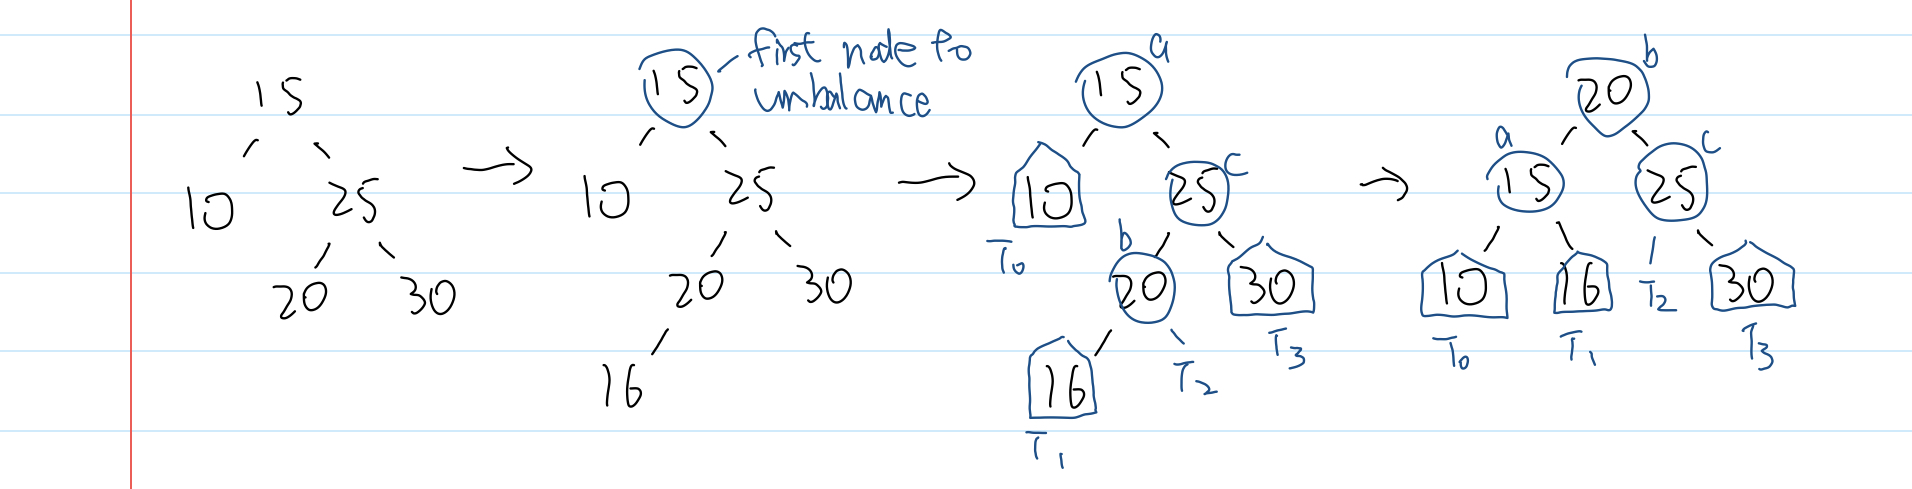 15
10 25
20 30
15 first node to
unbalance
10 25
20 30
16
a
15
10 25 c
T0
b
20 30
T3
16 T2
T1
b
20
a c
15 25
10 16 T2 30
T0 T1 T3